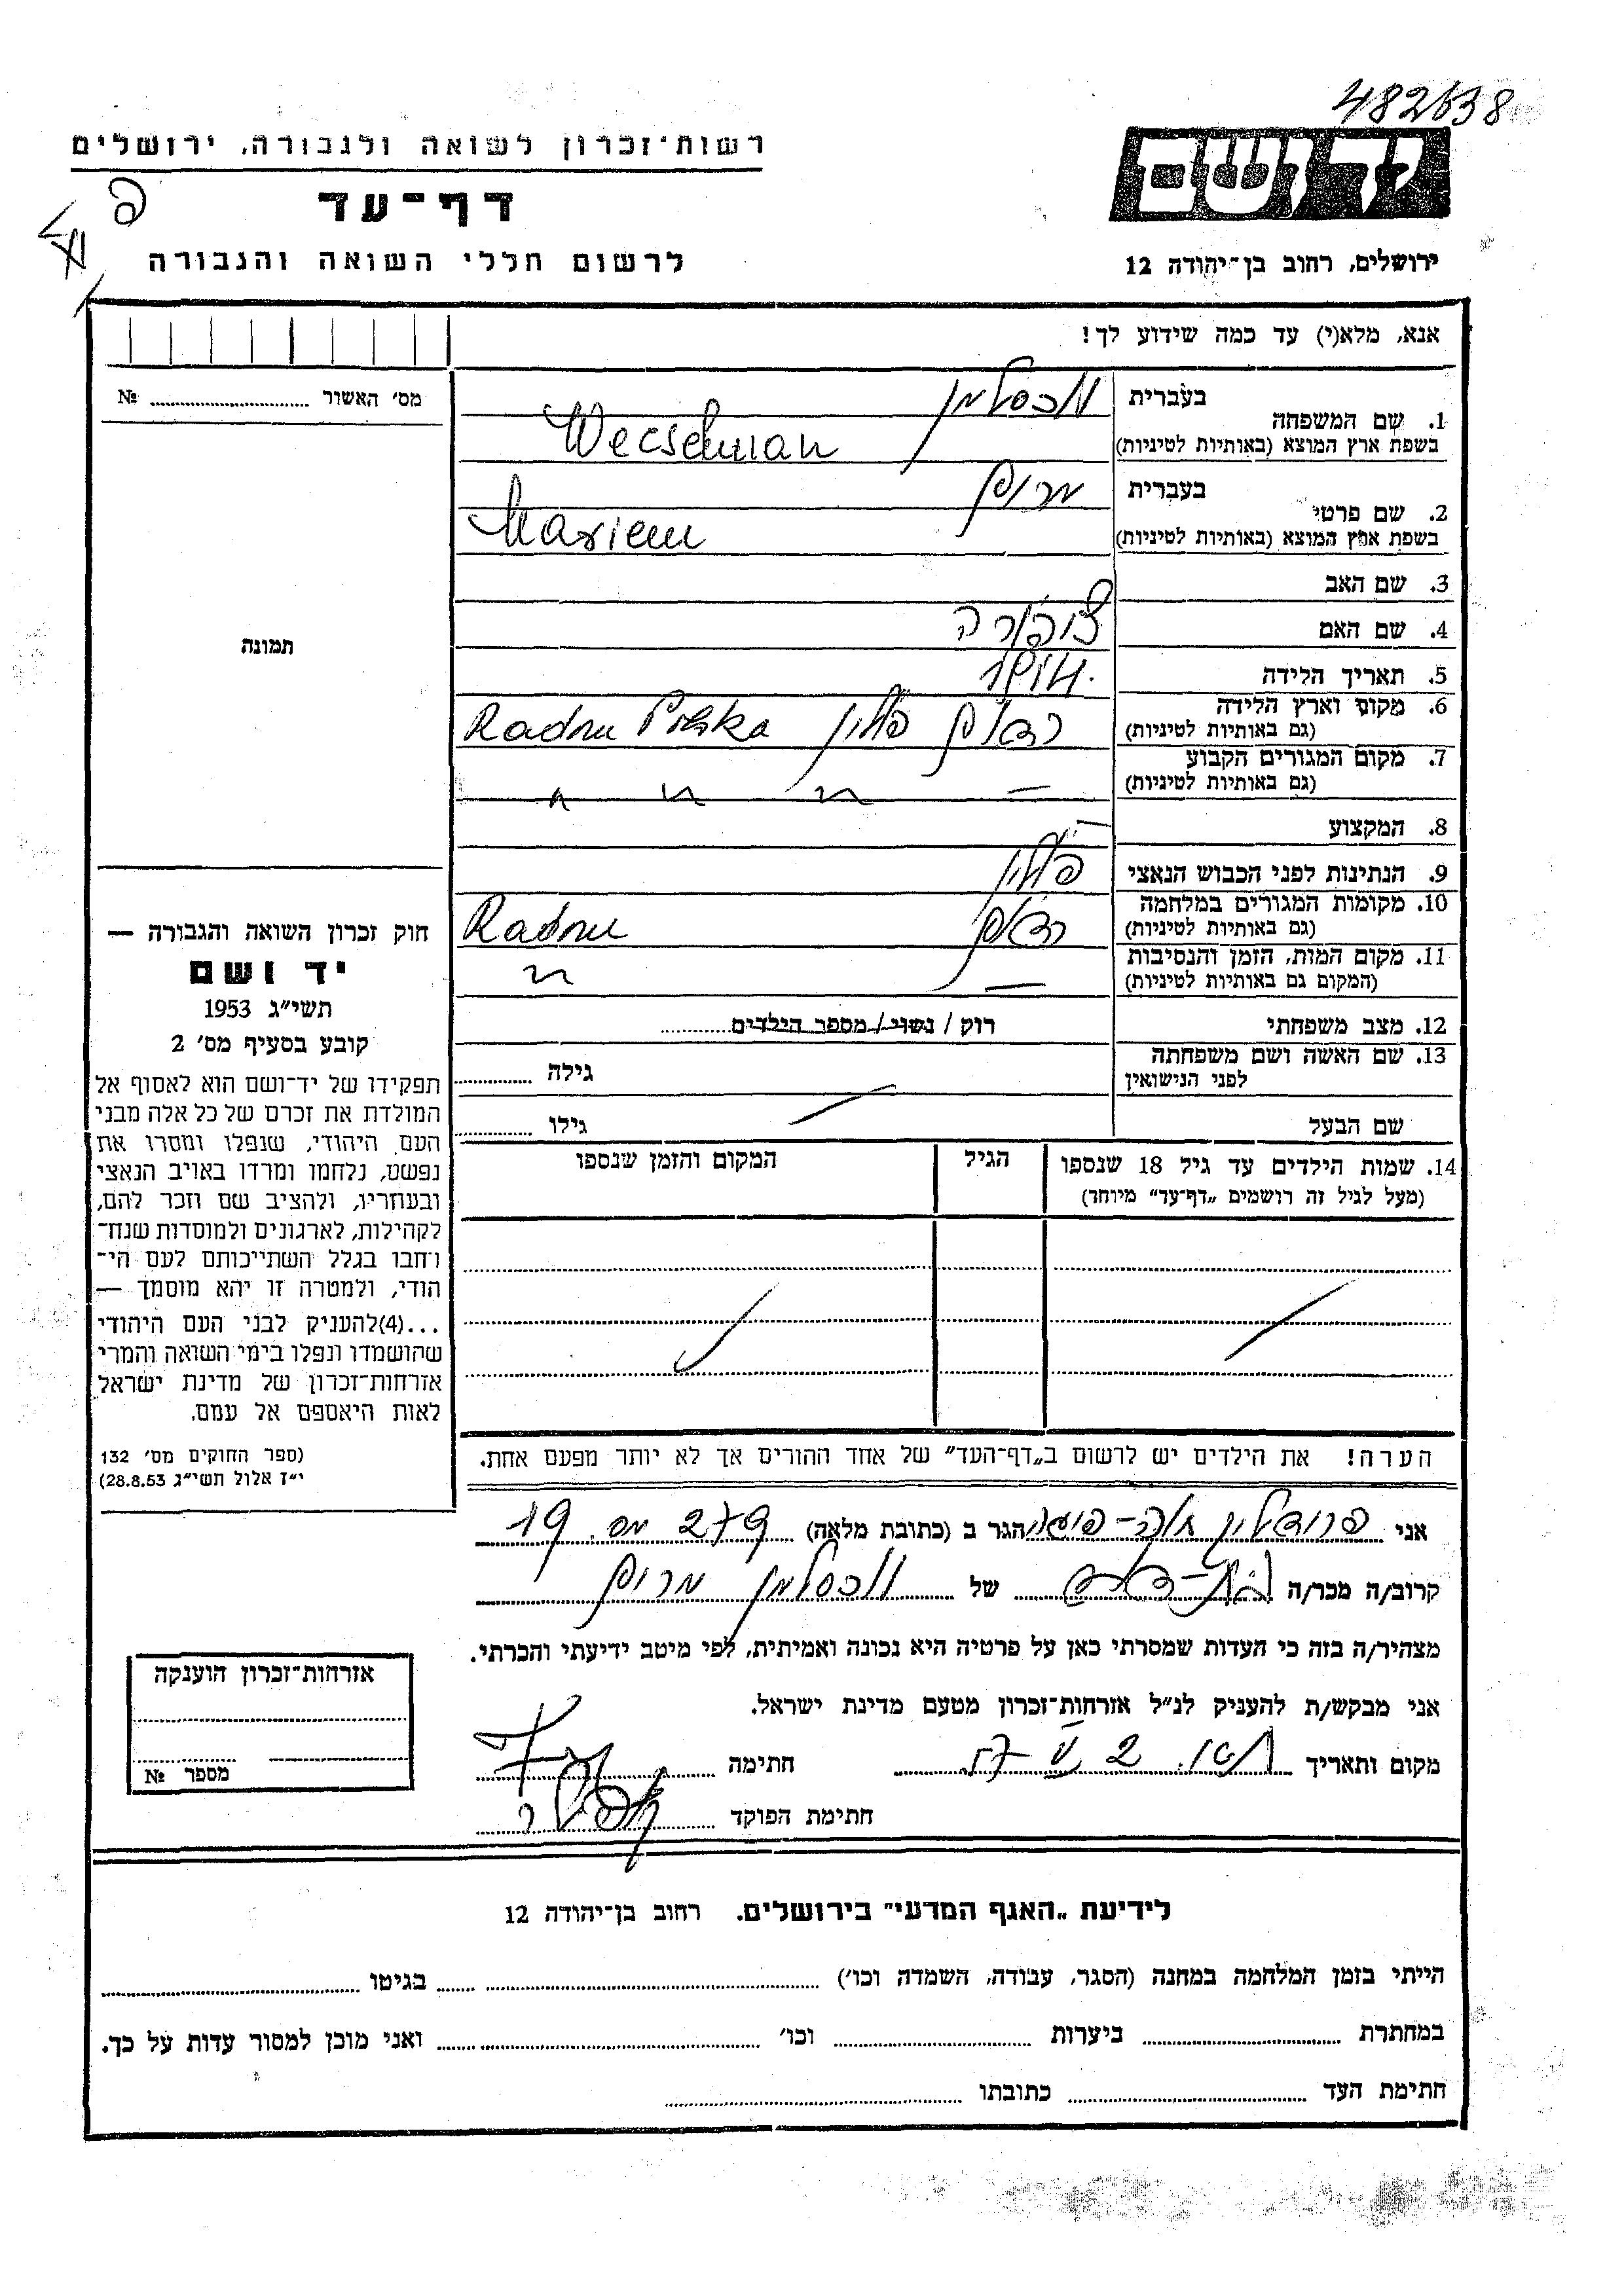 482638
רשות־זכרון לשואה ולגבורה, ירושלים
דף־עד
לרשום חללי השואה והגבורה
יד ושם
ירושלים, רחוב בן־יהודה 12
אנא, מלא(י) עד כמה שידוע לך!
מס׳ האשור № 
תמונה
חוק זכרון השואה והגבורה —
יד ושם
תשי״ג 1953
קובע בסעיף מס׳ 2
תפקידו של יד־ושם הוא לאסוף אל
המולדת את זכרם של כל אלה מבני
העם היהודי, שנפלו ומסרו את
נפשם, נלחמו ומרדו באויב הנאצי
ובעוזריו, ולהציב שם וזכר להם,
לקהילות, לארגונים ולמוסדות שנח־
רחבו בגלל השתייכותם לעם הי־
הודי, ולמטרה זו יהא מוסמך —
...(4)להעניק לבני העם היהודי
שהושמדו ונפלו בימי השואה והמרי
אזרחות־זכרון של מדינת ישראל
לאות היאספם אל עמם.
(ספר החוקים מס׳ 132
י״ז אלול תשי״ג 28.8.53)
1. שם המשפחה
בעברית וכסלמן
בשפת ארץ המוצא (באותיות לטיניות) Wecselman
2. שם פרטי
בעברית מרים
בשפת ארץ המוצא (באותיות לטיניות) Mariem
3. שם האב
4. שם האם ציפורה
5. תאריך הלידה
6. מקום וארץ הלידה
(גם באותיות לטיניות) פולין Radom Polska
7. מקום המגורים הקבוע
(גם באותיות לטיניות) — 〃 〃 〃
8. המקצוע —
9. הנתינות לפני הכבוש הנאצי פולין
10. מקומות המגורים במלחמה
(גם באותיות לטיניות) Radom
11. מקום המות, הזמן והנסיבות
(המקום גם באותיות לטיניות) — 〃
12. מצב משפחתי רוק / נשוי / מספר הילדים
13. שם האשה ושם משפחתה
לפני הנישואין גילה
שם הבעל גילו
14. שמות הילדים עד גיל 18 שנספו
(מעל לגיל זה רושמים „דף־עד״ מיוחד)
הגיל
המקום והזמן שנספו
הערה! את הילדים יש לרשום ב„דף־העד״ של אחד ההורים אך לא יותר מפעם אחת.
אני הגר ב (כתובת מלאה) 19
קרוב/ה מכר/ה של וכסלמן מרים
מצהיר/ה בזה כי העדות שמסרתי כאן על פרטיה היא נכונה ואמיתית, לפי מיטב ידיעתי והכרתי.
אני מבקש/ת להעניק לנ״ל אזרחות־זכרון מטעם מדינת ישראל.
מקום ותאריך חתימה
חתימת הפוקד
אזרחות־זכרון הוענקה
מספר №
לידיעת „האגף המדעי״ בירושלים, רחוב בן־יהודה 12
הייתי בזמן המלחמה במחנה (הסגר, עבודה, השמדה וכו׳) בגיטו
במחתרת ביערות וכו׳ ואני מוכן למסור עדות על כך.
חתימת העד כתובתו